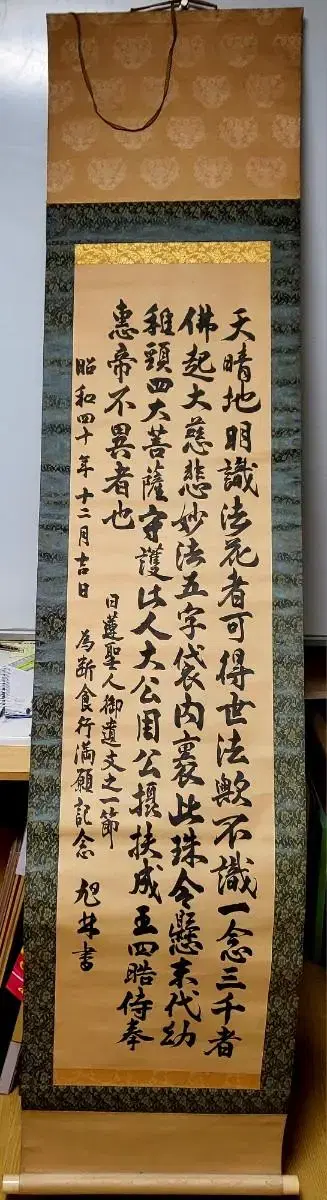 天晴地明識法花者可得世法歟不識一念三千者
佛起大慈悲妙法五字袋内裹此珠令懸末代幼
稚頸四大菩薩守護此人大公周公攝扶成王四晧侍奉
惠帝不異者也
日蓮聖人御遺文之一節
昭和四十年十二月吉日 為断食行満願記念 旭林書